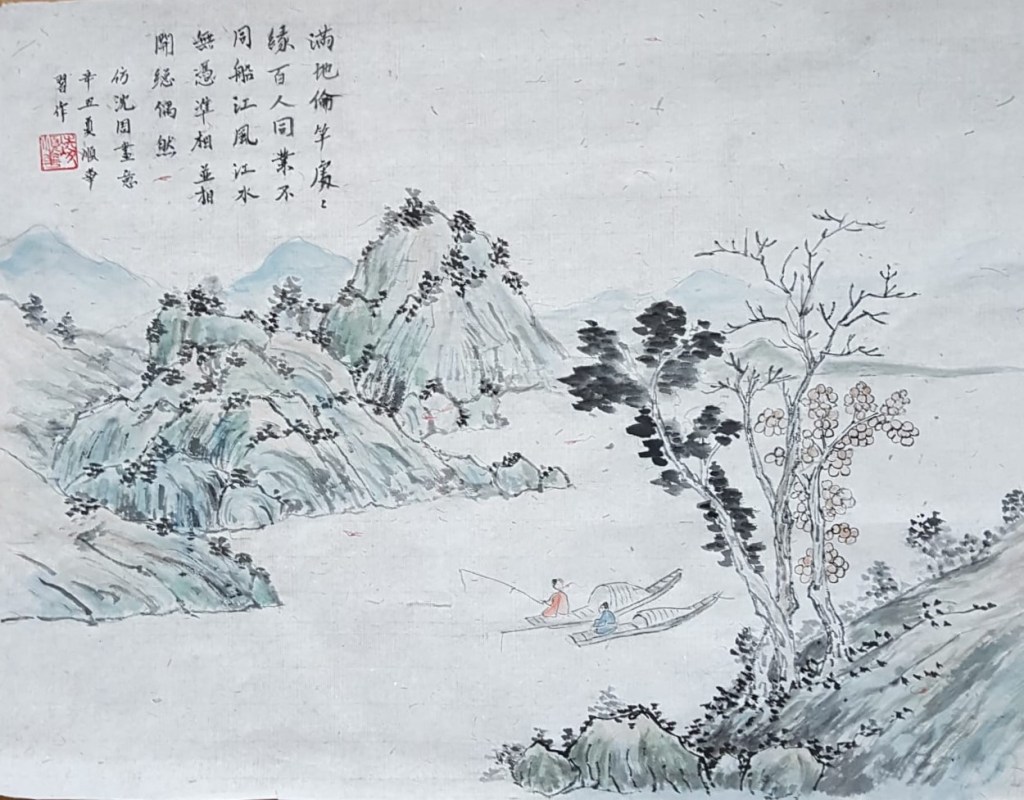 滿地倫竿處〻
緣百人同業不
同船江風江水
無憑準相並相
開總偶然
仿沈周畫意
辛丑夏順
習作